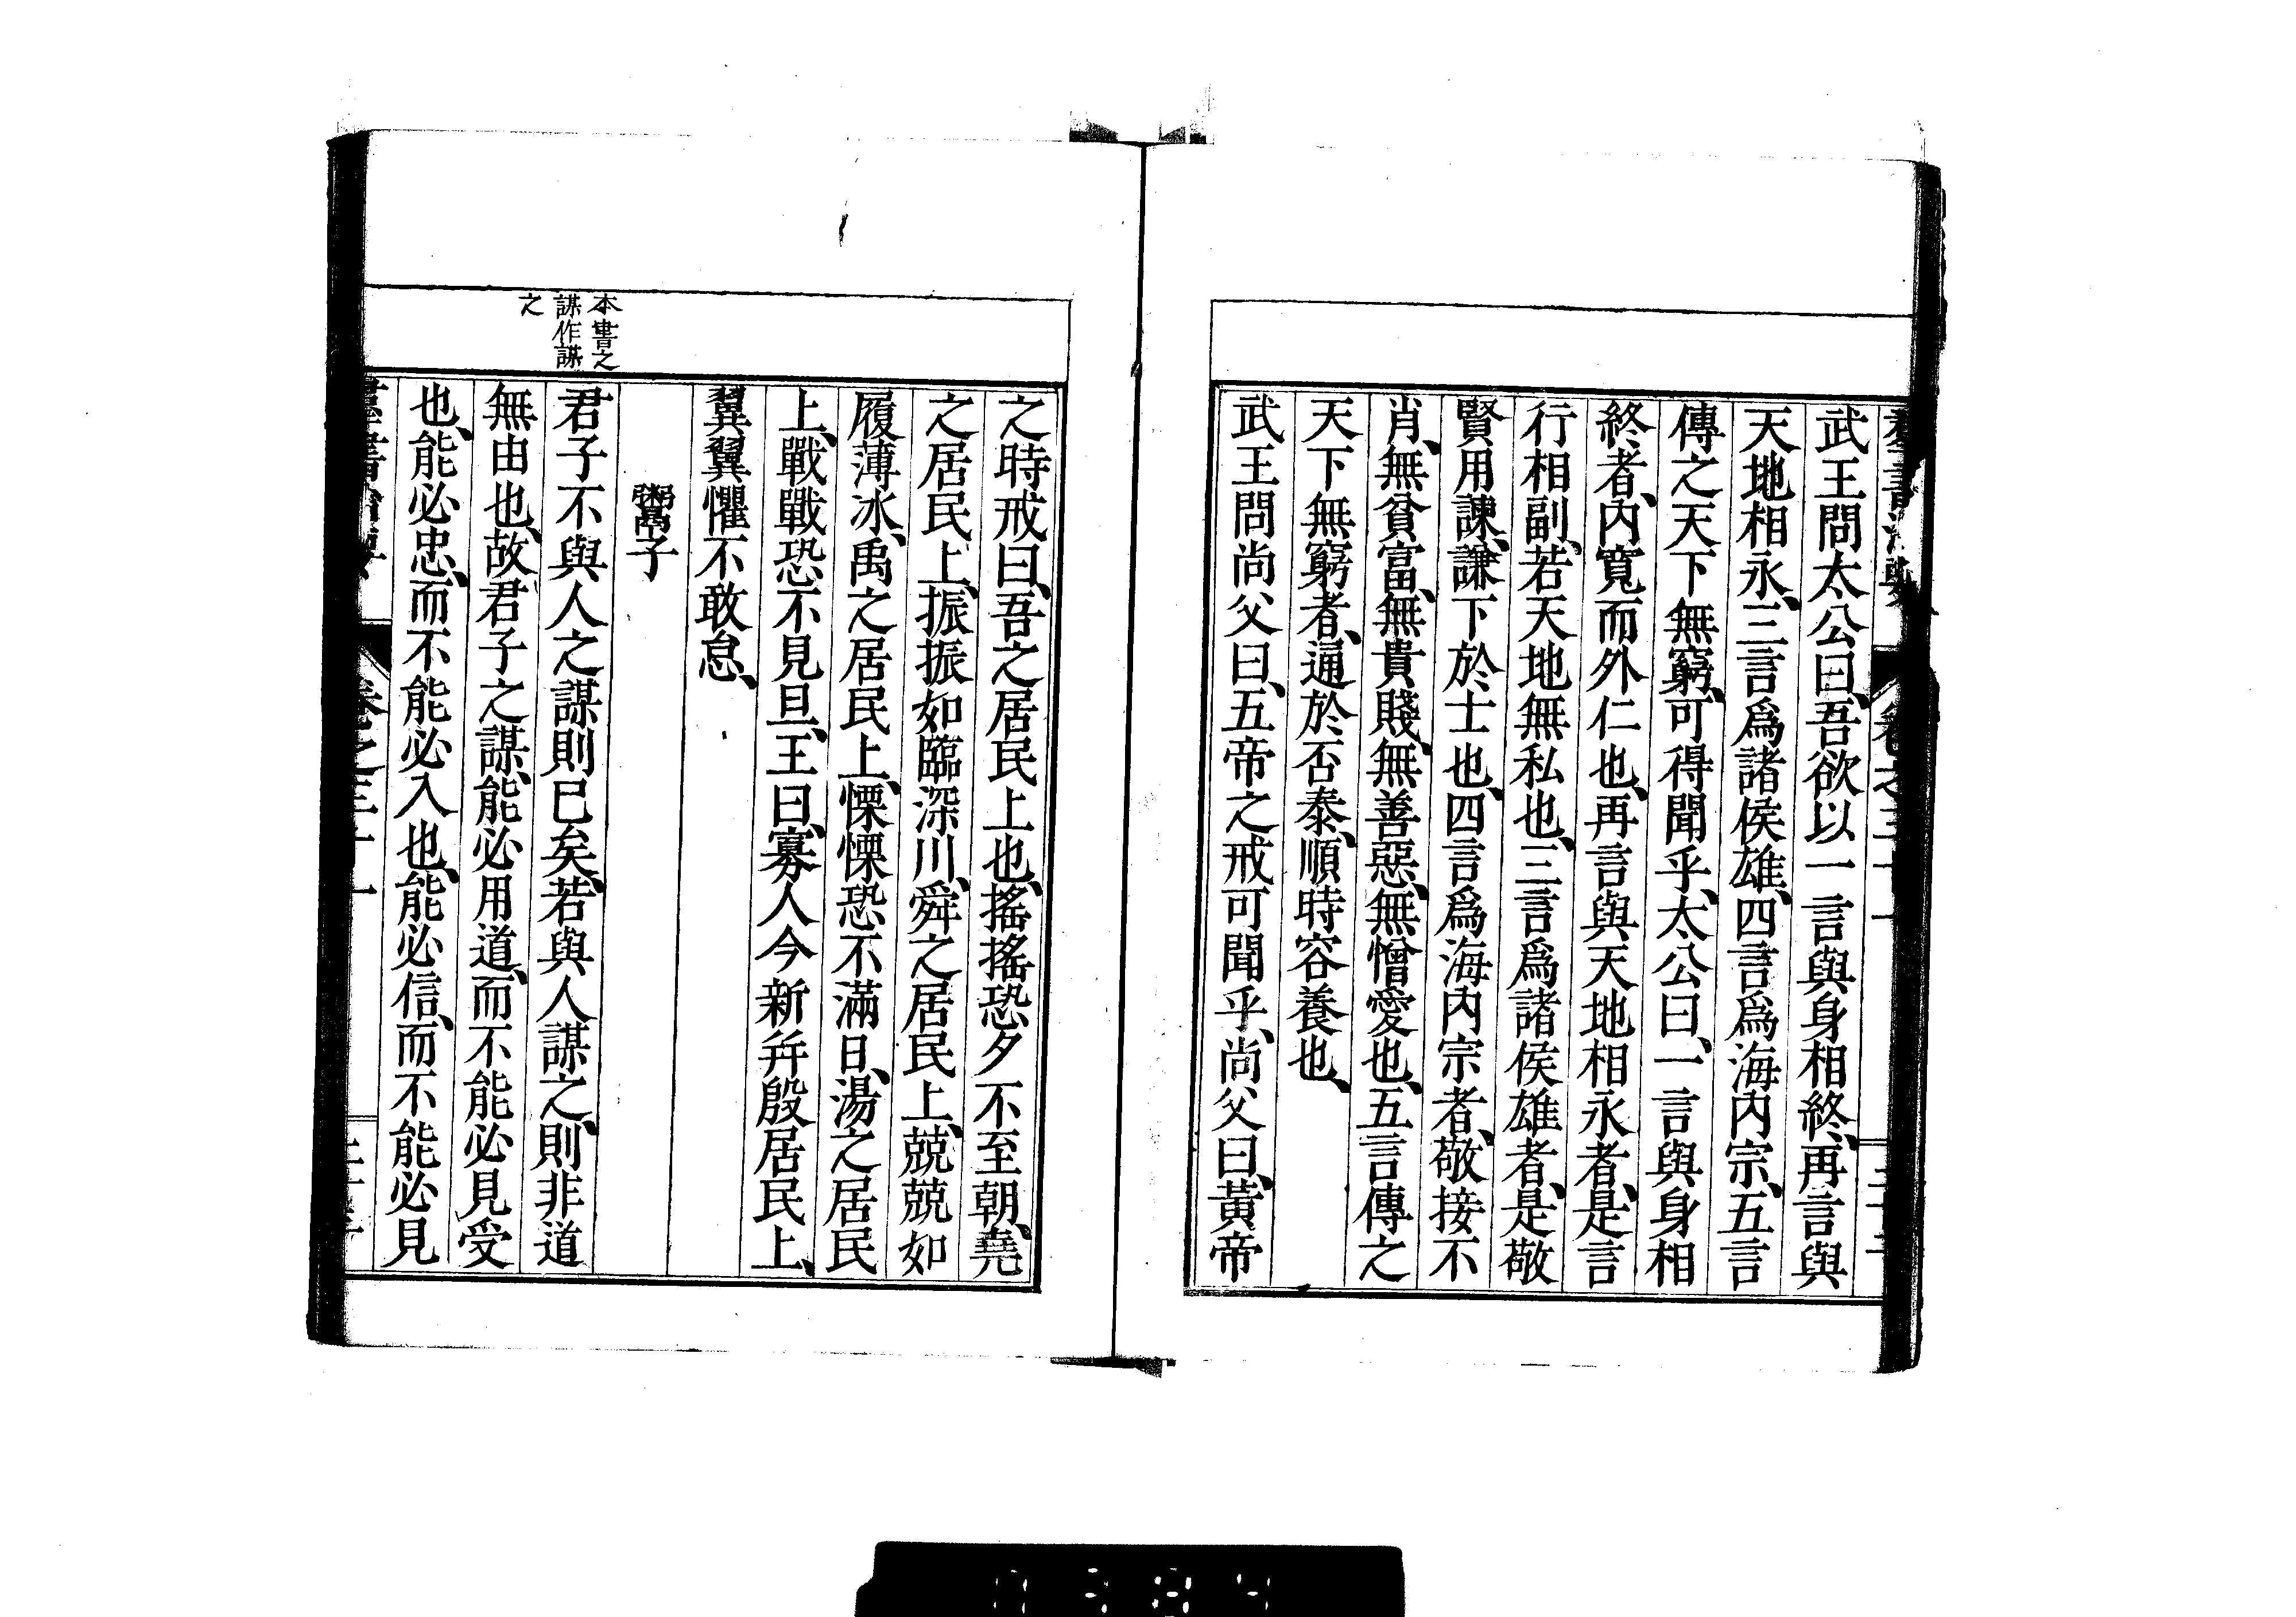 羣書治要 卷之三十一 二十三
武王問太公曰、吾欲以一言與身相終、再言與
天地相永、三言爲諸侯雄、四言爲海内宗、五言
傳之天下無窮、可得聞乎、太公曰、一言與身相
終者、内寬而外仁也、再言與天地相永者、是言
行相副、若天地無私也、三言爲諸侯雄者、是敬
賢用諫、謙下於士也、四言爲海内宗者、敬接不
肖、無貧富、無貴賤、無善惡、無憎愛也、五言傳之
天下無窮者、通於否泰、順時容養也、
武王問尚父曰、五帝之戒可聞乎、尚父曰、黃帝
之時戒曰、吾之居民上也、搖搖恐夕不至朝、堯
之居民上、振振如臨深川、舜之居民上、兢兢如
履薄冰、禹之居民上、慄慄恐不滿日、湯之居民
上、戰戰恐不見旦、王曰、寡人今新幷殷居民上、
翼翼懼不敢怠、
鬻子
本書之
謀作謀
之
君子不與人之謀則已矣、若與人謀之、則非道
無由也、故君子之謀、能必用道、而不能必見受
也、能必忠、而不能必入也、能必信、而不能必見
羣書治要 卷之三十一